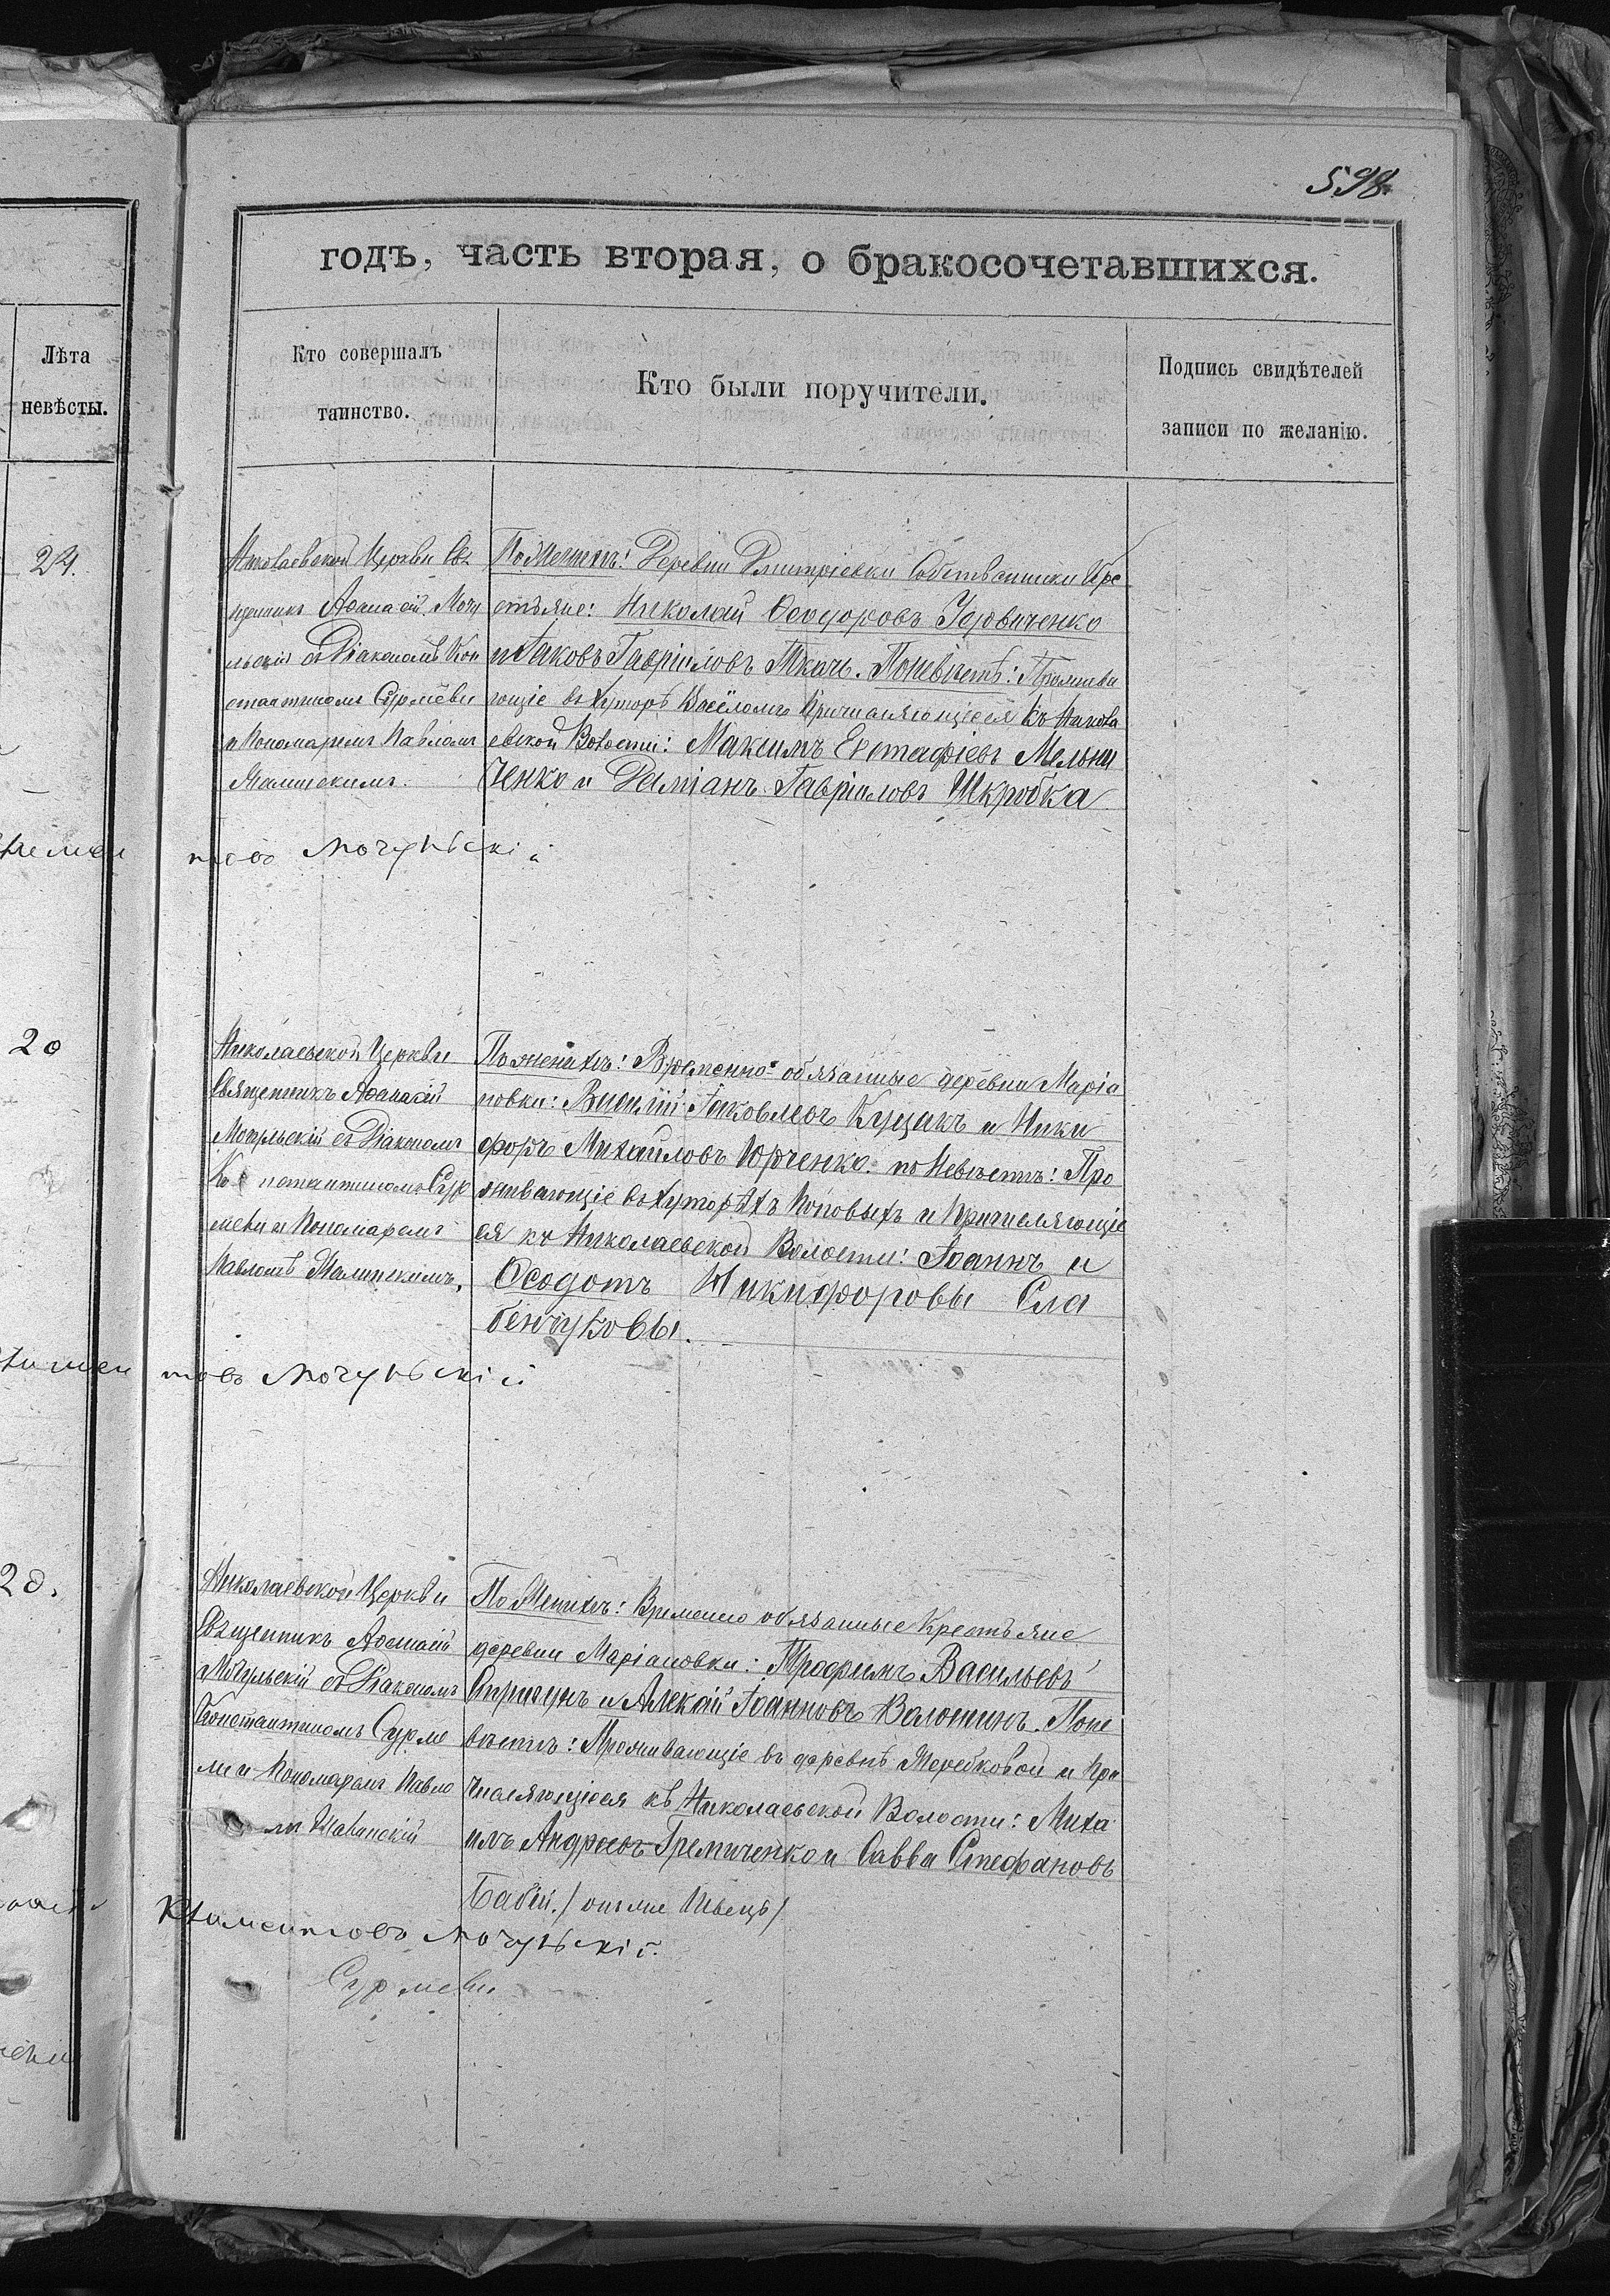 598
годъ, часть вторая, о бракосочетавшихся.
Лѣта
невѣсты.
Кто совершалъ
таинство.
Кто были поручители.
Подпись свидѣтелей
записи по желанію.
24.
Николаевской Церкви Свя
щенникъ Аѳанасій Мочу
льскій съ Діакономъ Кон
стантиномъ Сурмеви
и Пономаремъ Павломъ
По Женихѣ: Деревни Дмитріевки Собственники Кре
стьяне: Николай Ѳеодоровъ Удовиченко
и Іаковъ Гавріиловъ Ткачь. По невѣстѣ: Прожива
ющіе въ Хуторѣ Весёломъ Причисляющіеся къ Никола
евской Волости: Максимъ Евстафіевъ Мельни
ченко и Даміанъ Гавріиловъ Шкробка
товъ Мочульскій
20
Николаевской Церкви
Священникъ Аѳанасій
Мочульскій съ Діакономъ
Константиномъ Сур
меви и Пономаремъ
Павломъ
По женихѣ: Временно-обязанные деревни Маріа
новки: Василій Іаковлевъ Куцакъ и Ники
форъ Михаиловъ Юрченко. по Невѣстѣ: Про
живающіе въ Хуторѣхъ Поповыхъ и Причисляющіе
ся къ Николаевской Волости: Іоаннъ и
Ѳеодотъ Никифоровы Сла
бенчуковы.
товъ Мочульскій
20.
Николаевской Церкви
Священникъ Аѳанасій
Мочульскій съ Діакономъ
Константиномъ Сурме
ли и Пономаремъ Павло
По Женихѣ: Временно обязанные Крестьяне
деревни Маріановки: Трофимъ Васильевъ
и Алексій Іоанновъ Волошинъ. По не
вѣстѣ: Проживающіе въ деревнѣ Жеребковой и При
числяющіеся къ Николаевской Волости: Миха
илъ Андреевъ Гремиченко и Савва Стефановъ
Бабій. / онъ же Швецъ /
Климентовъ Мочульскій.
Сурмеви